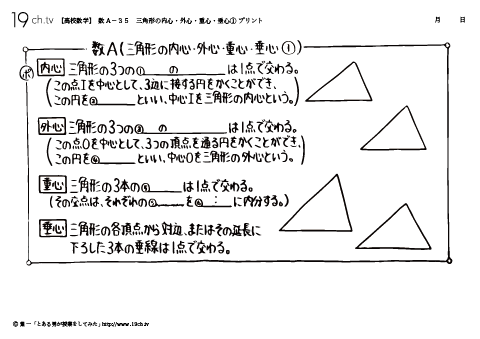 19ch.tv 【高校数学】 数A－35 三角形の内心・外心・重心・垂心① プリント 月 日
数A(三角形の内心・外心・重心・垂心①)
ポ 内心 三角形の3つの① の は1点で交わる。
(この点Iを中心として、3辺に接する円をかくことができ、
この円を② といい、中心Iを三角形の内心という。)
外心 三角形の3つの③ の は1点で交わる。
(この点Oを中心として、3つの頂点を通る円をかくことができ、
この円を④ といい、中心Oを三角形の外心という。)
重心 三角形の3本の⑤ は1点で交わる。
(その交点は、それぞれの⑤ を⑥ : に内分する。)
垂心 三角形の各頂点から対辺、またはその延長に
下ろした3本の垂線は1点で交わる。
© 葉一「とある男が授業をしてみた」http://www.19ch.tv